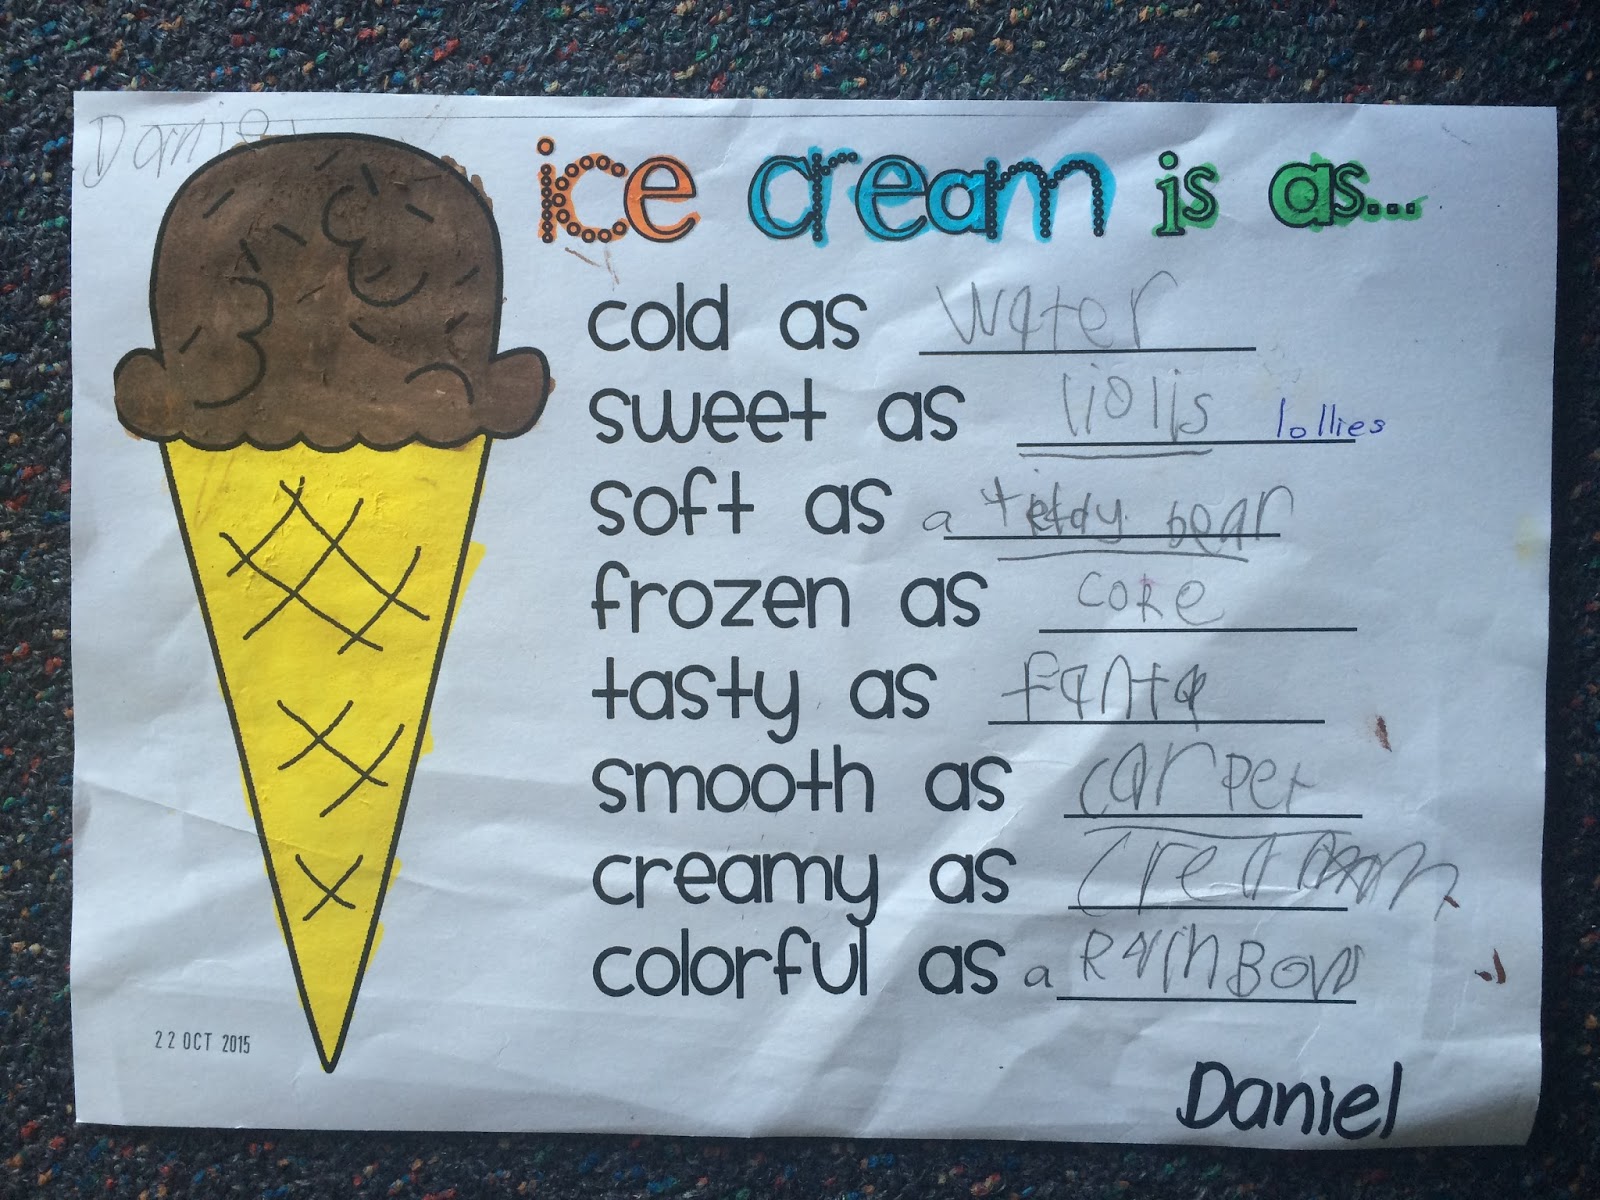 Danie
ice cream is as...
cold as water
sweet as liolljs lollies
soft as a teddy bear
frozen as coke
tasty as fanta
smooth as carpet
creamy as cream
colorful as a RainBow
22 OCT 2015
Daniel